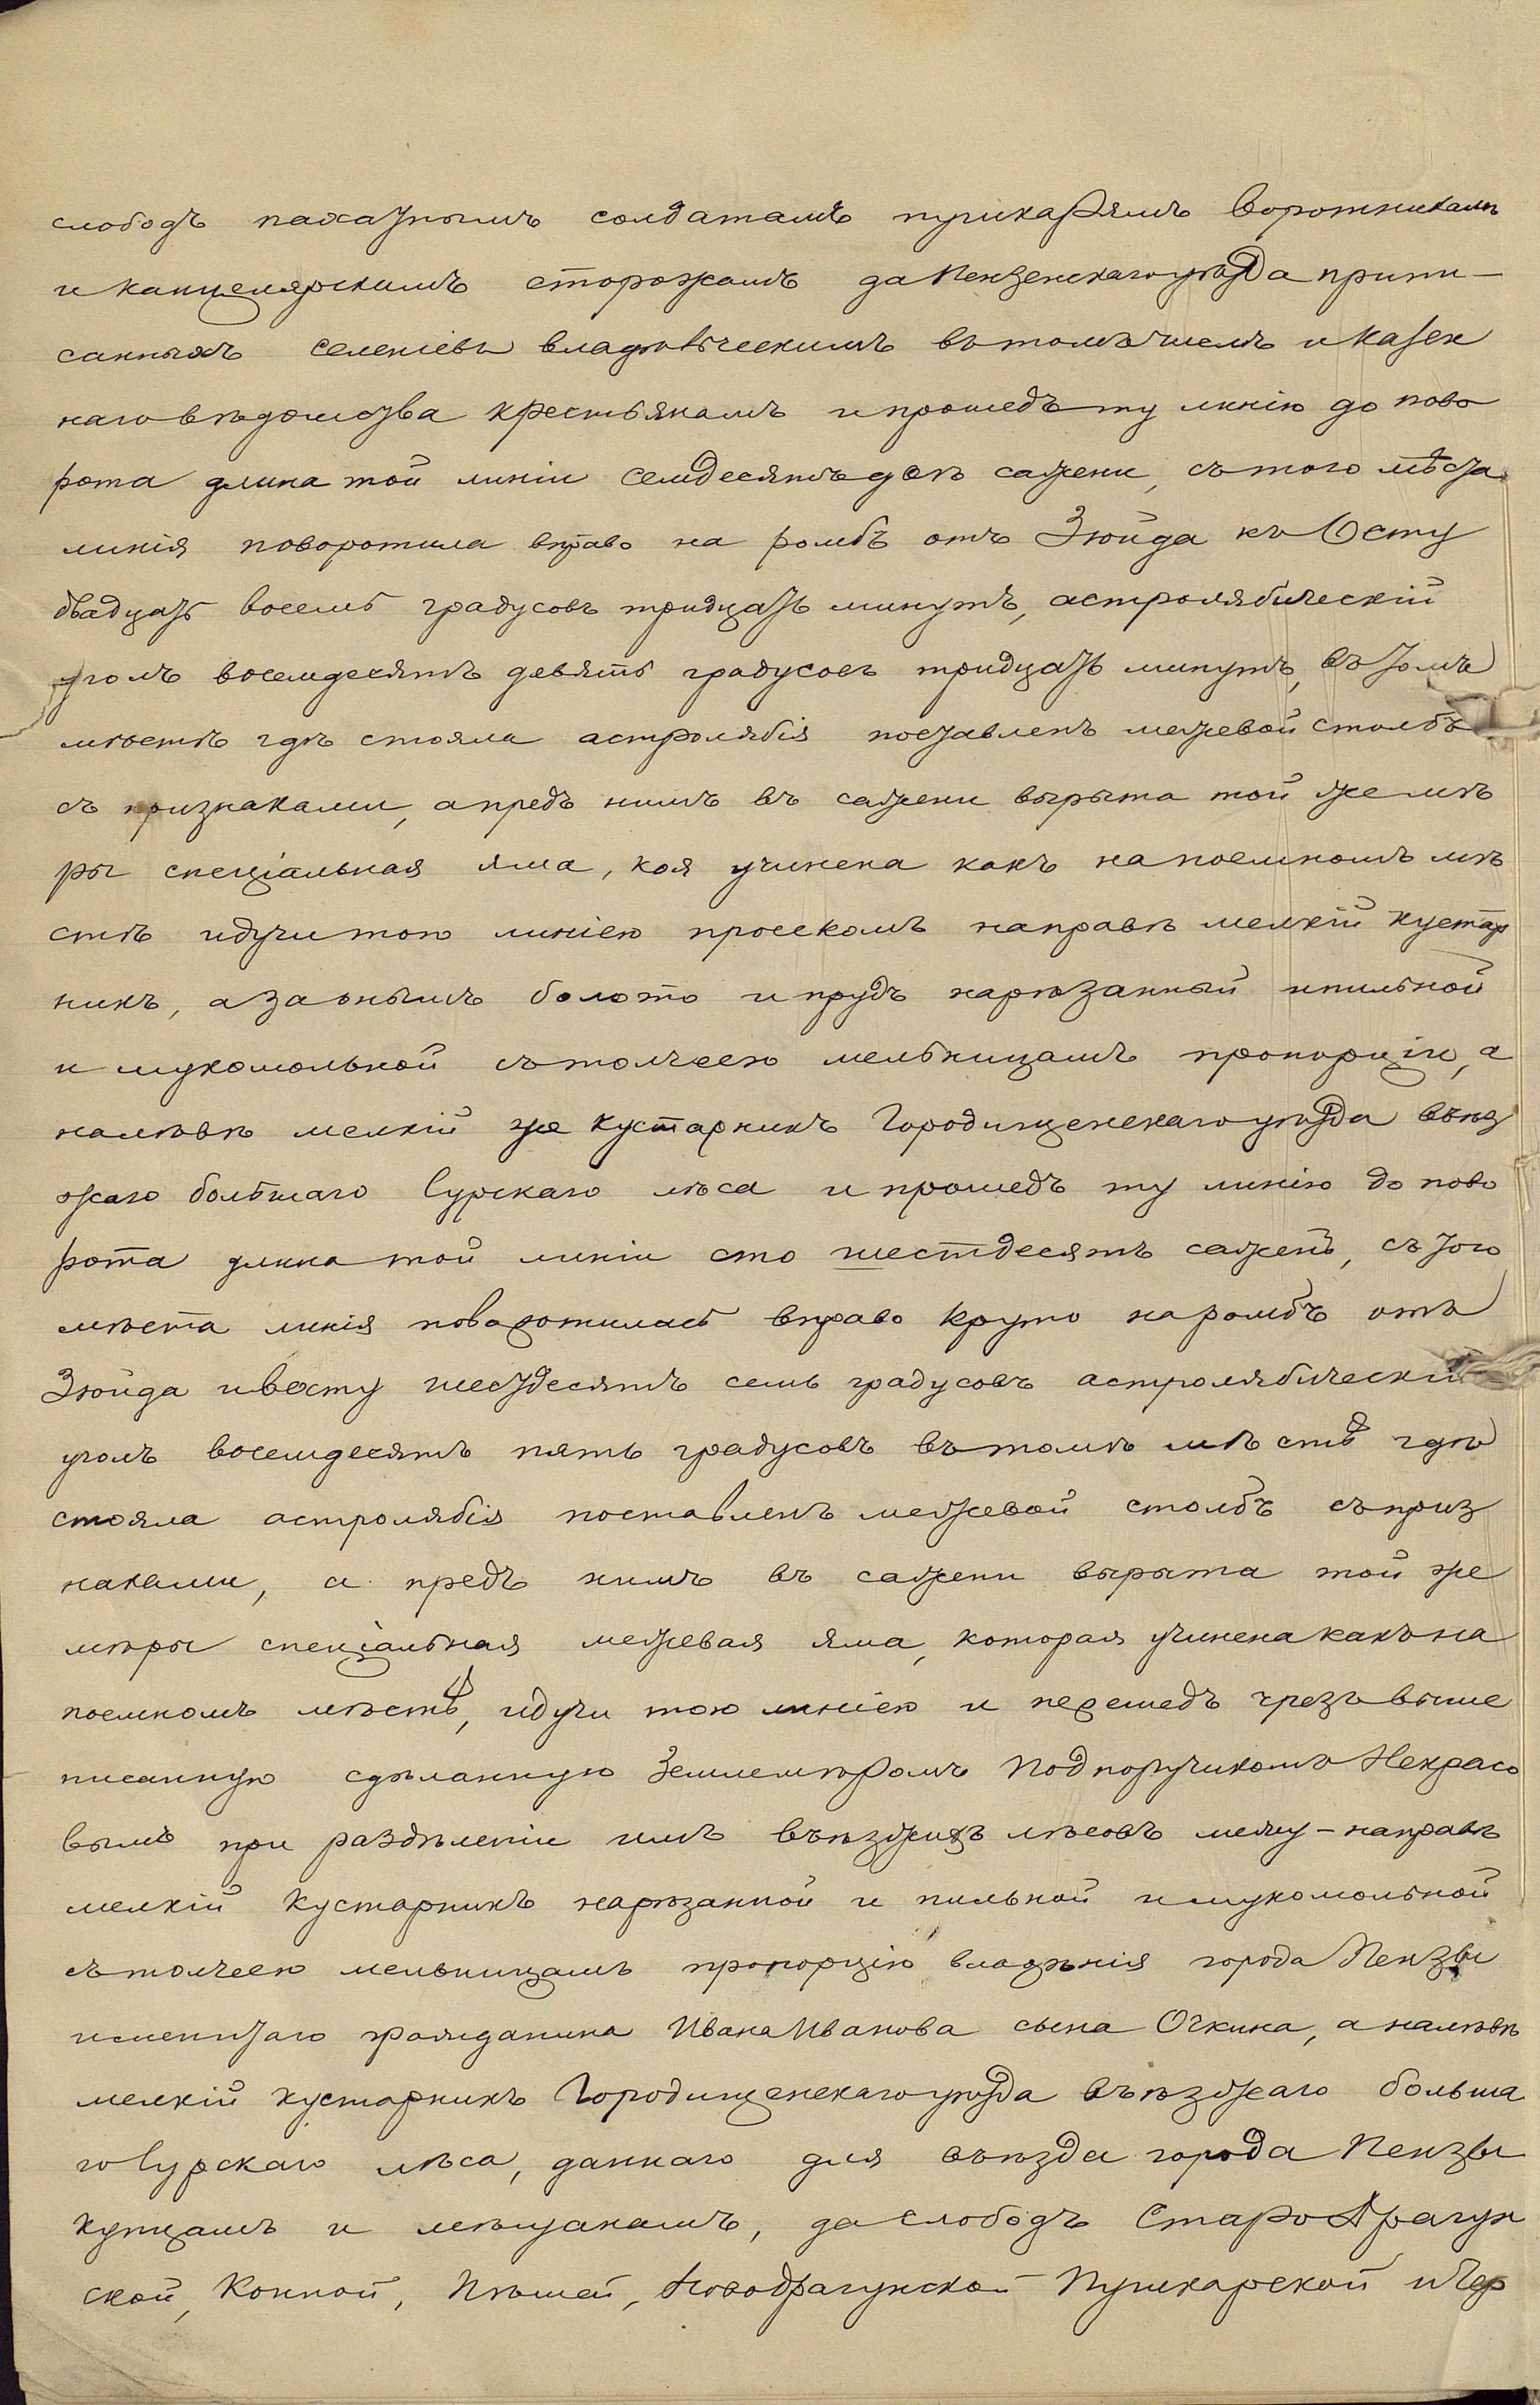 слободъ пахатнымъ солдатамъ пушкарямъ воротникамъ
и канцелярскимъ сторожамъ да Пензенскаго уѣзда припи-
санныхъ селеніевъ владѣльческимъ въ томъ числѣ и казен
наго вѣдомства крестьянамъ и прошедъ ту линію до пово
рота длина той линіи семдесятъ двѣ сажени, съ того мѣста
линія поворотила вправо на ромбъ отъ Зюйда къ Осту
двадцать восемь градусовъ тридцать минутъ, астролябическій
уголъ восемдесятъ девять градусовъ тридцать минутъ, въ томъ
мѣстѣ гдѣ стояла астролябія поставленъ межевой столбъ
съ признаками, а предъ нимъ въ сажени вырыта той же мѣ
ры спеціальная яма, коя учинена какъ на поемномъ мѣ
стѣ идучи тою линіею просекомъ направѣ мелкій кустар
никъ, а за онымъ болото и прудъ нарѣзанный и пильной
и мукомольной съ толчеею мельницамъ пропорціи, а
налѣвѣ мелкій же кустарникъ Городищенскаго уѣзда въѣз
жаго большаго Сурскаго лѣса и прошедъ ту линію до пово
рота длина той линіи сто шестдесятъ саженъ, съ того
мѣста линія поворотилась вправо круто на ромбъ отъ
Зюйда и весту шестдесятъ семь градусовъ астролябическій
уголъ восемдесятъ пять градусовъ въ томъ мѣстѣ гдѣ
стояла астролябія поставленъ межевой столбъ съ приз
наками, а предъ нимъ въ сажени вырыта той же
мѣры спеціальная межевая яма, которая учинена какъ на
поемномъ мѣстѣ, идучи тою линіею и перешедъ чрезъ выше
писанную сдѣланную Землемѣромъ Подпоручикомъ Некрасо
вымъ при раздѣленіи имъ въѣзжихъ лѣсовъ межу - направѣ
мелкій кустарникъ нарѣзанной и пильной и мукомольной
съ толчеею мельницамъ пропорцію владѣнія города Пензы
именитаго гражданина Ивана Иванова сына Очкина, а налѣвѣ
мелкій кустарникъ Городищенскаго уѣзда въѣзжаго больша
го Сурскаго лѣса, даннаго для въѣзда города Пензы
купцамъ и мѣщанамъ, да слободъ Старо Драгун
ской, Конной, Пѣшей, Новодрагунской Пушкарской и Чер